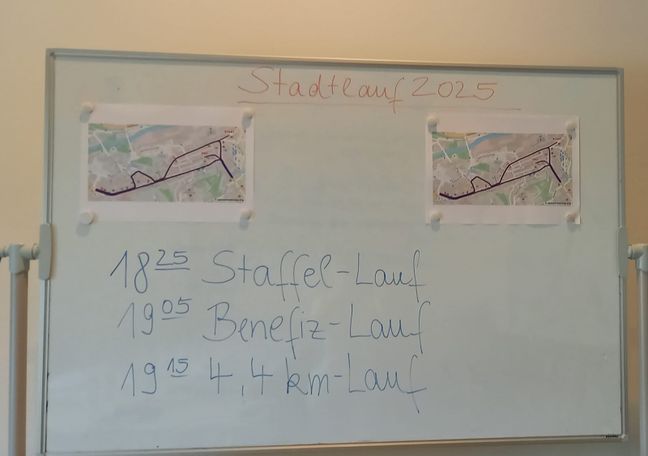 Stadtlauf 2025
18 25 Staffel-Lauf
19 05 Benefiz-Lauf
19 15 4,4 km-Lauf